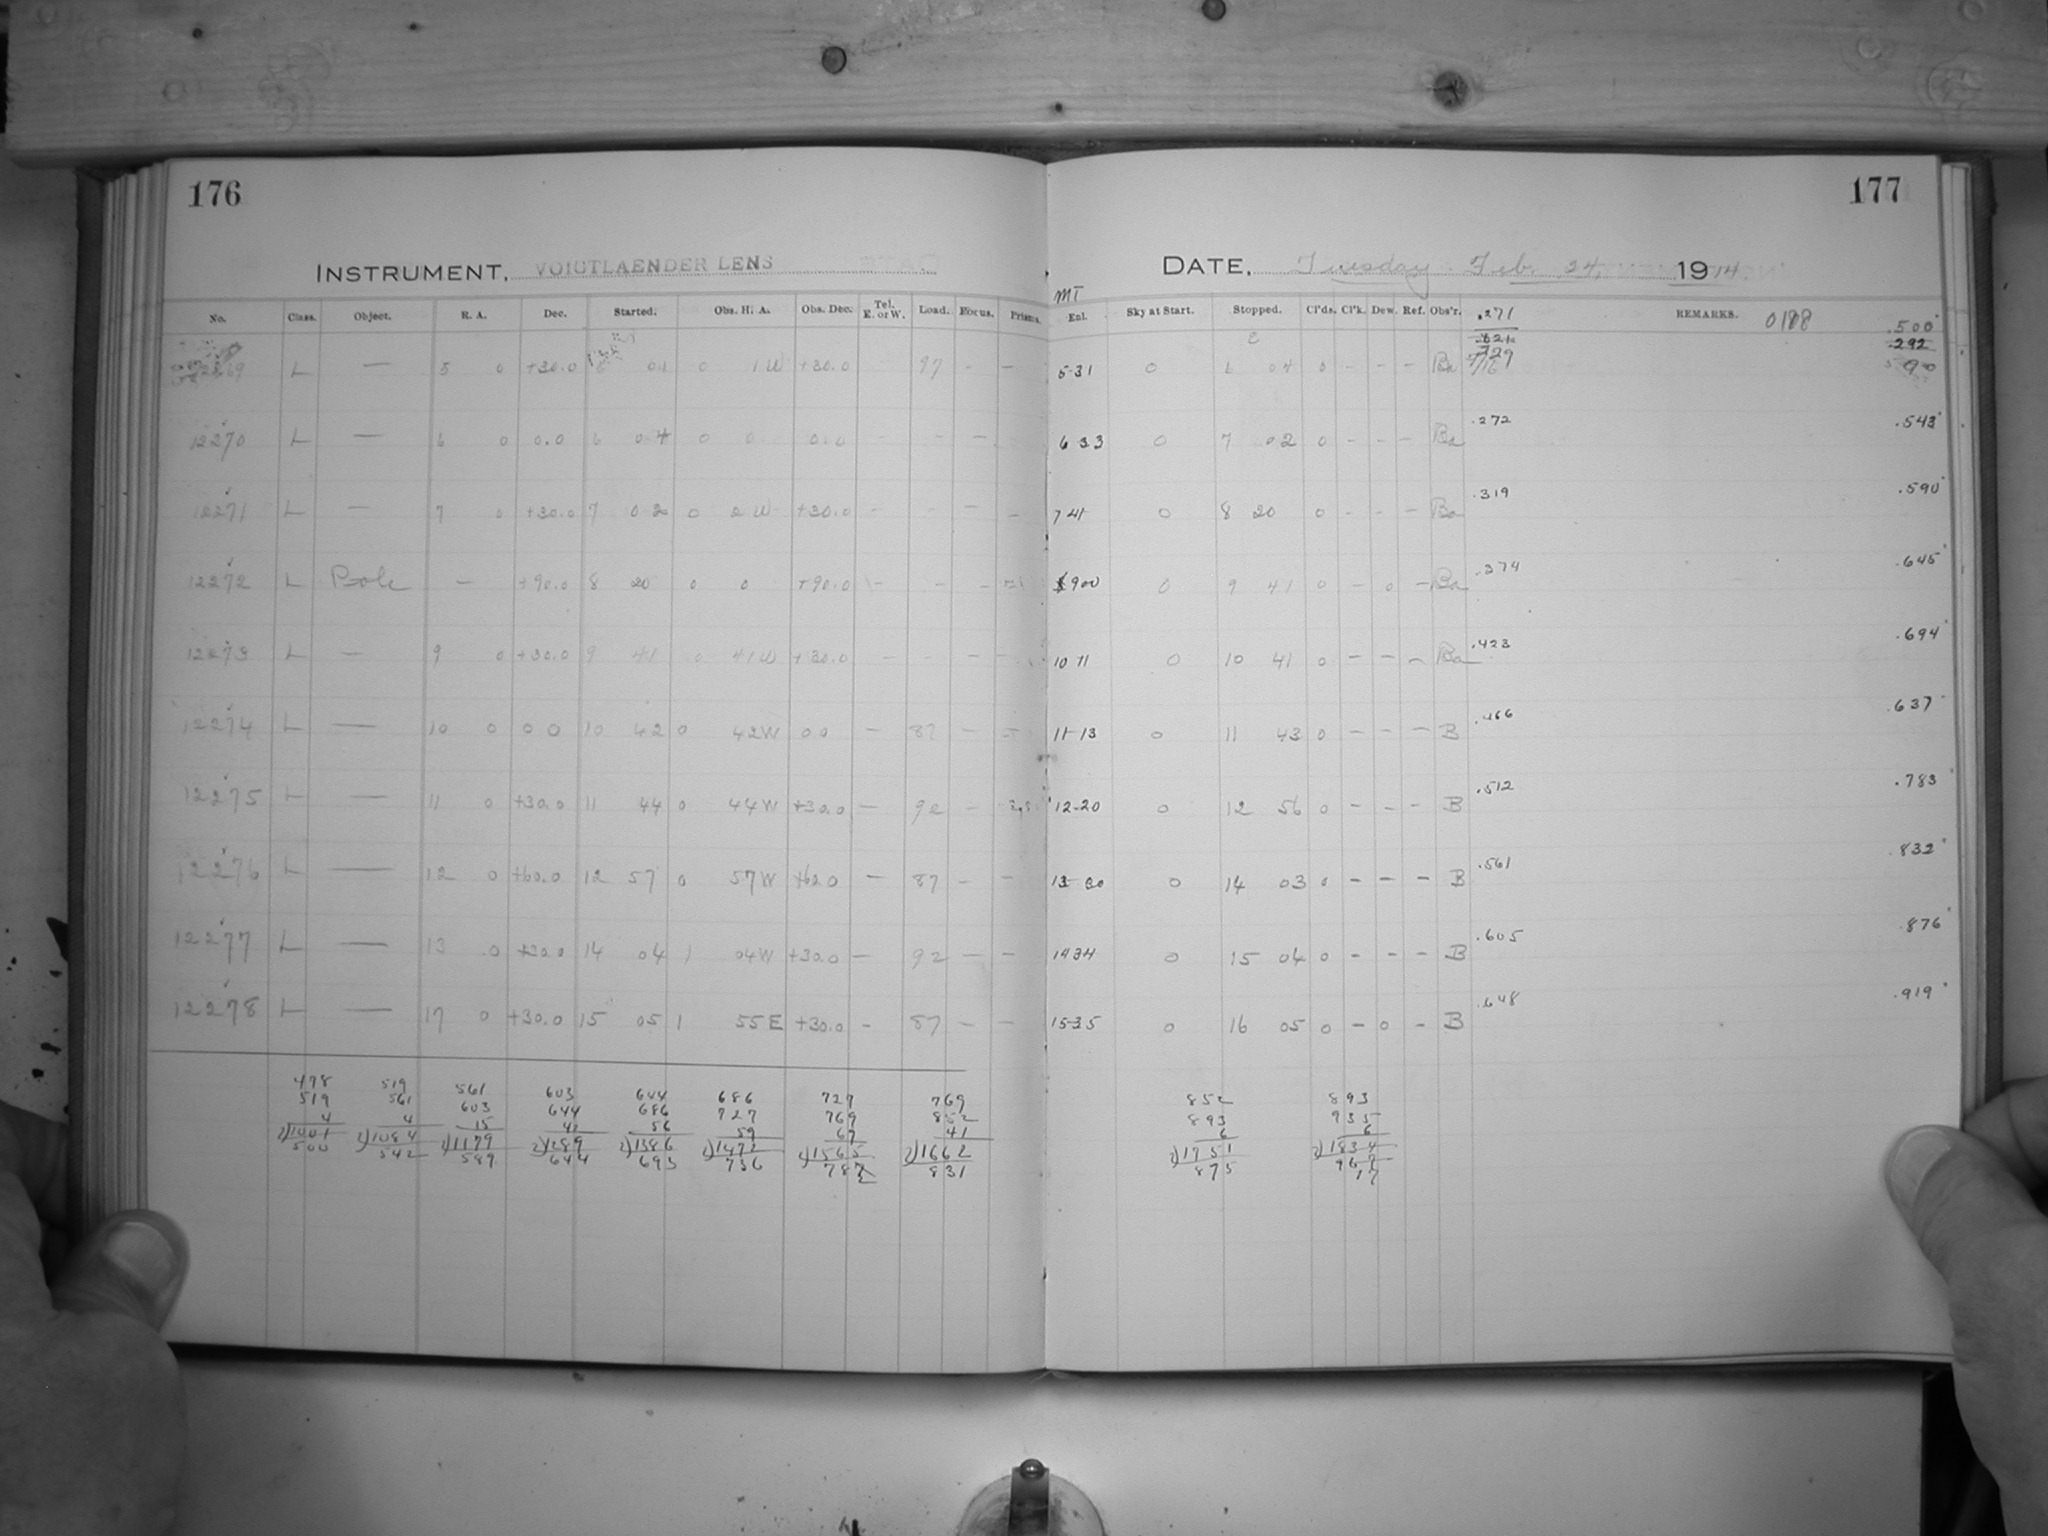 176
177
INSTRUMENT, VOIGTLAENDER LENS
DATE, Tuesday Feb. 24, 1914.
No. Class. Object. R. A. Dec. Started. Obs. H. A. Obs. Dec. Tel. E. or W. Load. Focus. Prisms. MT Enl. Sky at Start. Stopped. Cl'ds. Cl'k. Dew. Ref. Obs'r. .271 REMARKS. .500
L — 5 0 +30.0 6 01 0 1W +30.0 97 - - 5-31 0 6 04 0 - - - Ba .292
12270 L — 6 0 0.0 6 04 0 0 0.0 - - - 6 33 0 7 02 0 - - - Ba .272 .543
12271 L — 7 0 +30.0 7 02 0 2W +30.0 - - - - 7 41 0 8 20 0 - - - Ba .319 .590
12272 L Pole — +90.0 8 20 0 0 +90.0 - - - 900 0 9 41 0 - 0 - Ba .374 .645
12273 L — 9 0 +30.0 9 41 0 41W +30.0 - - - 10 11 0 10 41 0 - - - Ba .423 .694
12274 L — 10 0 0 0 10 42 0 42W 0 0 — 87 - - 11-13 0 11 43 0 - - - B .466 .637
12275 L — 11 0 +30.0 11 44 0 44W +30.0 — 92 - 12-20 0 12 56 0 - - - B .512 .783
12276 L — 12 0 +60.0 12 57 0 57W +62.0 — 87 - - 0 14 03 0 - - - B .561 .832
12277 L — 13 0 +30.0 14 04 1 04W +30.0 — 92 - - 1434 0 15 04 0 - - - B .605 .876
12278 L — 17 0 +30.0 15 05 1 55E +30.0 - 87 - - 15-35 0 16 05 0 - 0 - B .648 .919
478 519 561 603 644 686 727 769 852 893
519 561 603 644 686 727 769 852 893 935
4 4 15 56 59 67 41 6 6
2)1001 2)1084 2)1179 2)1289 2)1386 2)1472 2)1565 2)1662 2)1751 2)1834
500 542 589 644 693 736 831 875
17